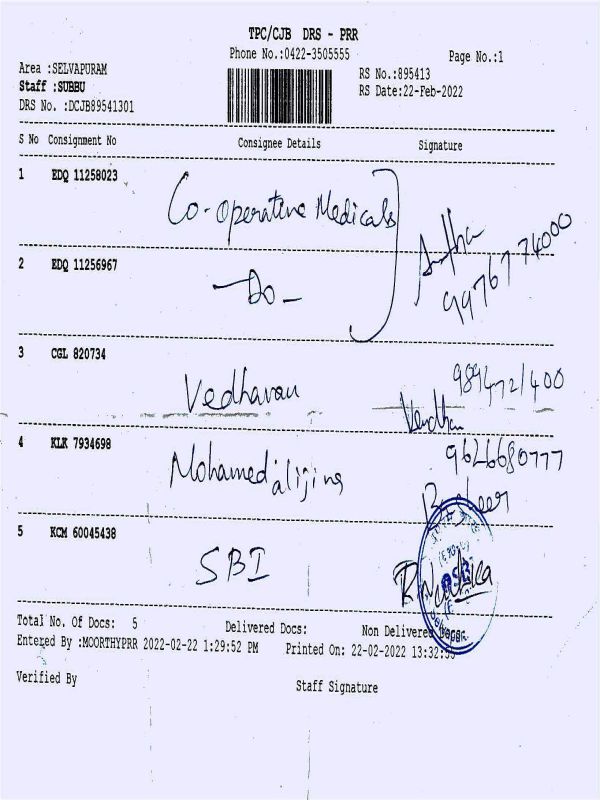 TPC/CJB DRS - PRR
Phone No.:0422-3505555
Page No.:1
Area :SELVAPURAM
Staff :SUBBU
DRS No. :DCJB89541301
RS No.:895413
RS Date:22-Feb-2022
S No Consignment No Consignee Details Signature
1 EDQ 11258023
Co-operative Medicals
2 EDQ 11256967
-Do-
9976774000
3 CGL 820734
Vedhavan
4 KLK 7934698
Mohamed
9626680777
5 KCM 60045438
SBI
Total No. Of Docs: 5 Delivered Docs: Non Delivered Docs:
Entered By :MOORTHYPRR 2022-02-22 1:29:52 PM Printed On: 22-02-2022 13:32:
Verified By
Staff Signature